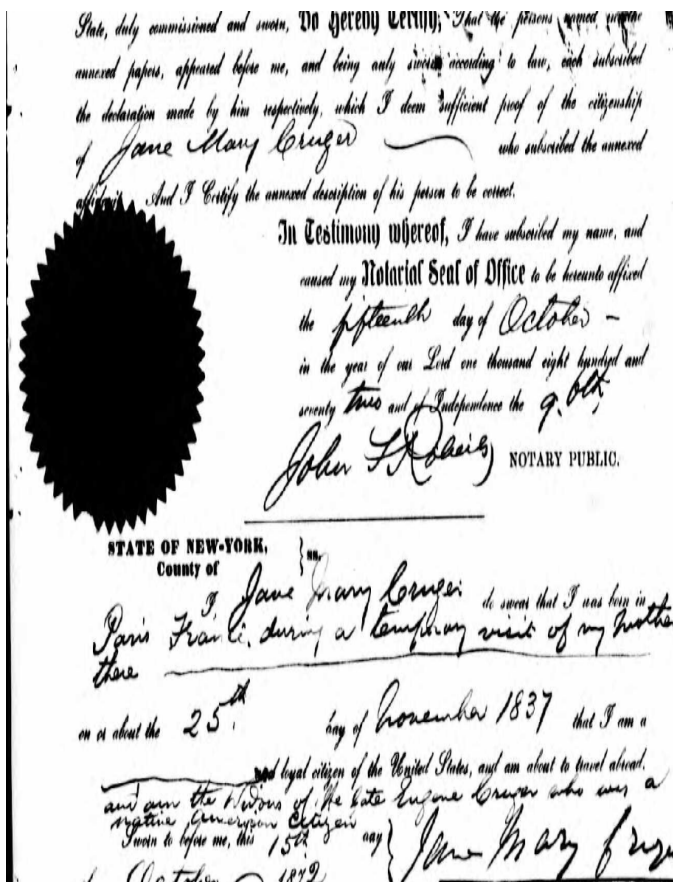 State, duly commissioned and sworn, Do Hereby Certify, That the persons named in the
annexed papers, appeared before me, and being duly sworn according to law, each subscribed
the declaration made by him respectively, which I deem sufficient proof of the citizenship
of Jane Mary Cruger who subscribed the annexed
affidavit. And I Certify the annexed description of his person to be correct.
In Testimony whereof, I have subscribed my name, and
caused my Notarial Seal of Office to be hereunto affixed
the fifteenth day of October
in the year of our Lord one thousand eight hundred and
seventy two and of Independence the
John F Roberts NOTARY PUBLIC.
STATE OF NEW-YORK,
County of } ss.
I Jane Mary Cruger do swear that I was born in
Paris France, during a temporary visit of my mother
there
on or about the 25th day of November 1837 that I am a
and loyal citizen of the United States, and am about to travel abroad.
and am the Widow of the late Eugene Cruger who was a
native American Citizen
Sworn to before me, this 15th day } Jane Mary Cruger
October 1872